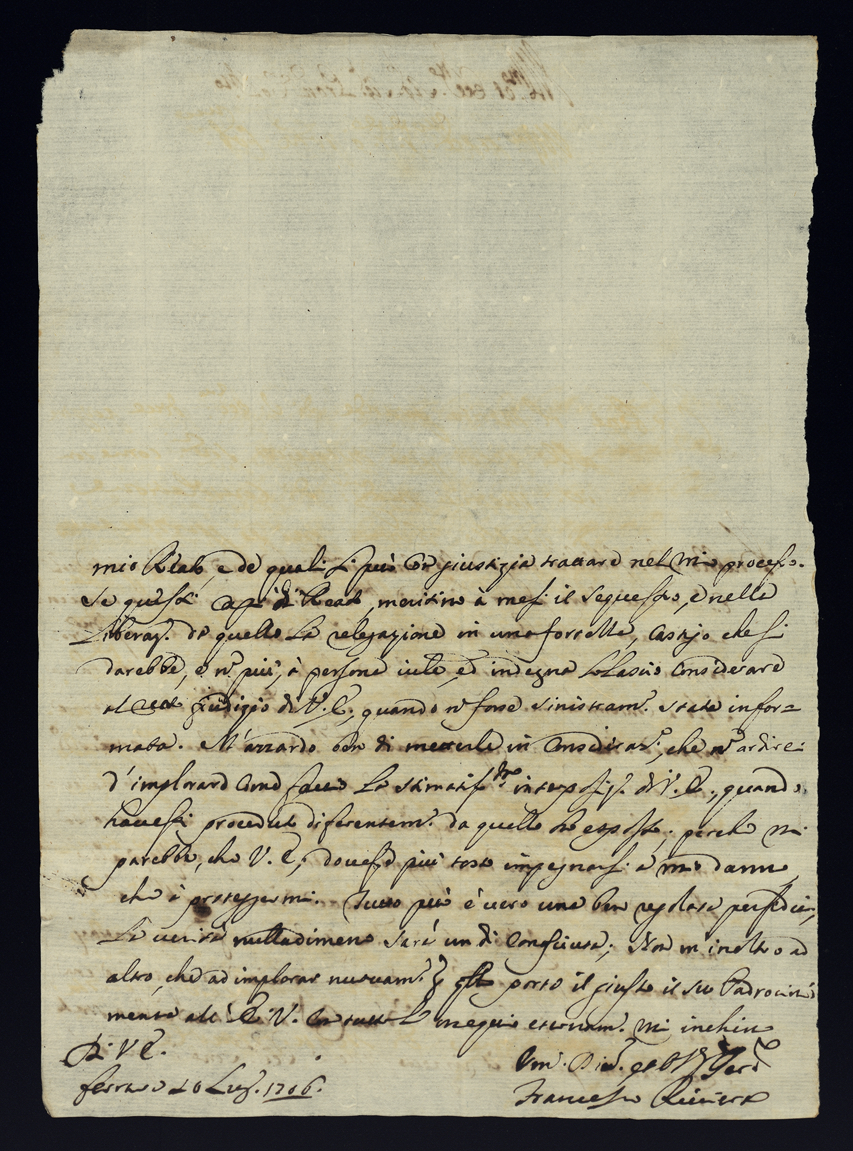 mio Reato, e de quali si può con giustizia trattare nel mio processo.
Se questi capi di Reato, meritino à mesi il sequestro, e nella
Liberaz.e da quello La relegazione in una fortezza, castigo che si
darebbe, e n.n più, à persone vile, ed indegne Lo Lascio considerare
al giudizio di V. E., quando n.n fosse sinistram.e stata infor=
mata. M'azzardo ben di metterle in Consideraz.e, che n.n ardirei
d'implorare come faccio La stimatiss.ma interposiz.e di V. E., quando
havessi proceduto diferentem.e da quello ho esposto; perche mi
parebbe, che V. E., dovesse più tosto impegnarsi à mio danno,
che à proteggermi. Tutto può è vero una ben regolata perfidia,
La verità nulladimeno sarà un dì conosciuta; Non m'inoltro ad
altro, che ad implorar nuovam.e il giusto il suo Padrocinio
mentre all' E. V. con tutto L'ossequio eternam.e mi inchino
Di V. E.
ferrara 10 Lug. 1706.
Um. Div. ob. Ser.
Francesco Riviera